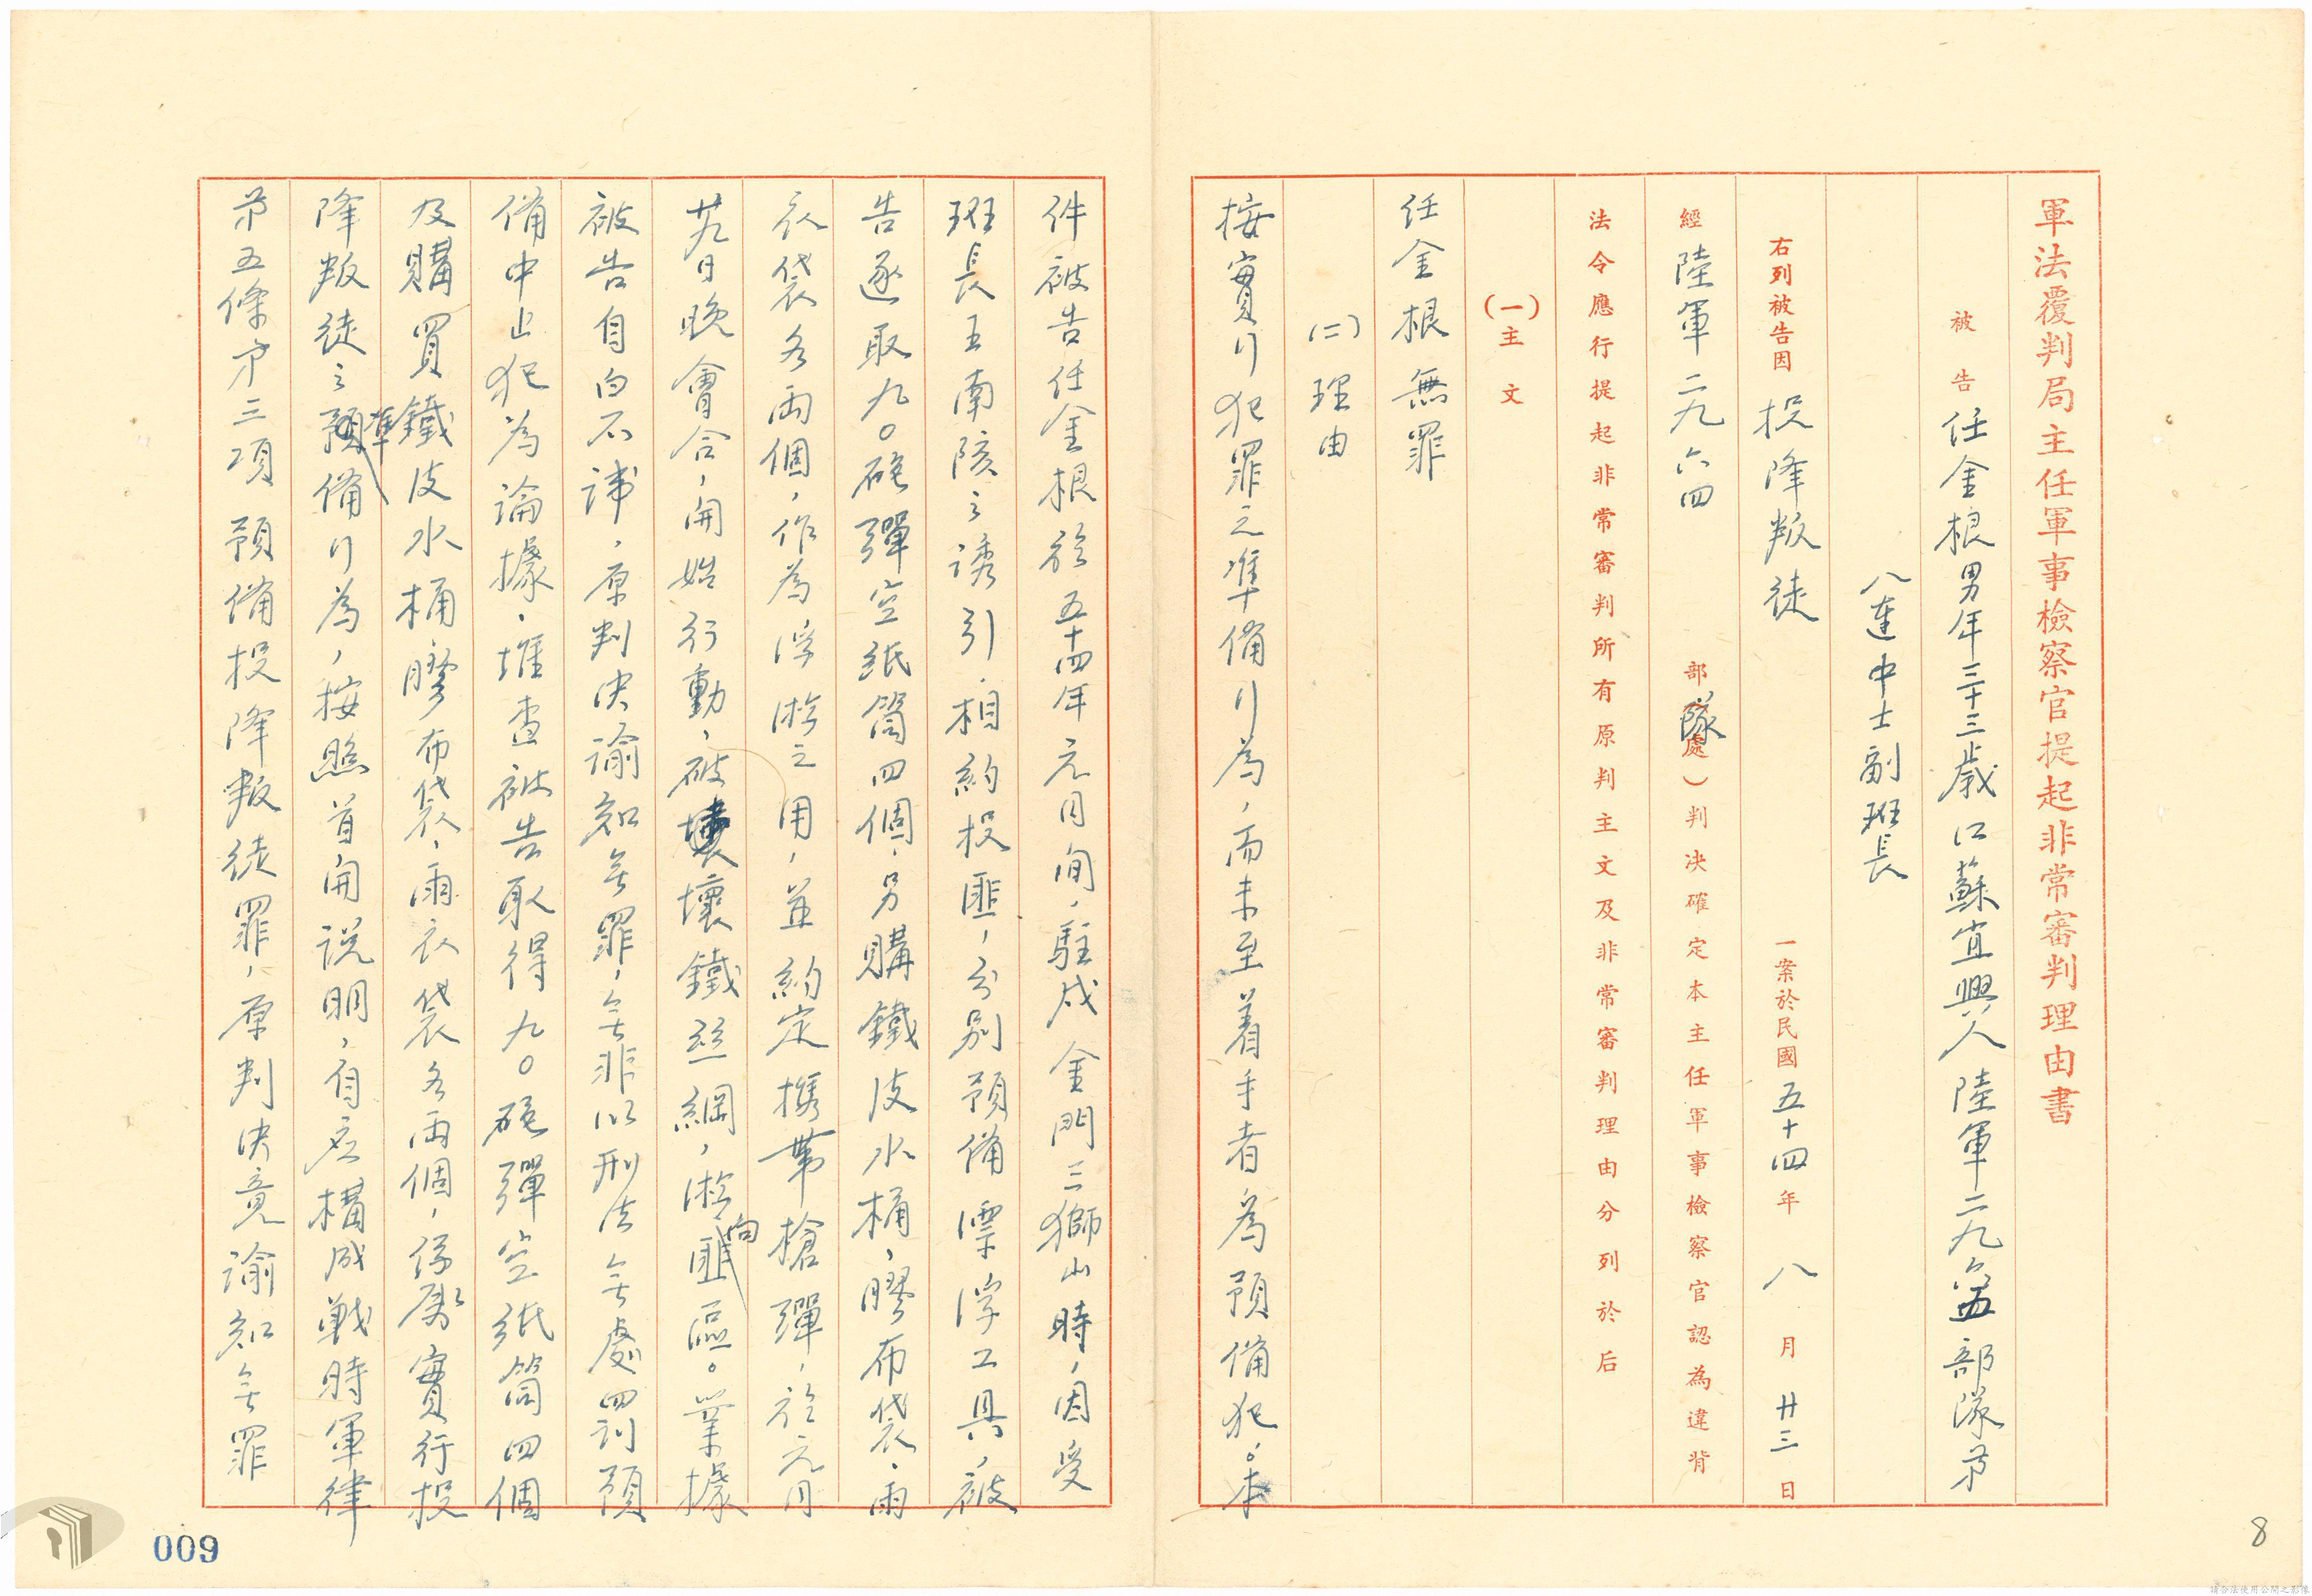 軍法覆判局主任軍事檢察官提起非常審判理由書
被告任金根男年三十三歲江蘇宜興人陸軍二九六四部隊第
八連中士副班長
右列被告因投降叛徒一案於民國五十四年八月廿三日
經陸軍二九六四部隊(處)判決確定本主任軍事檢察官認為違背
法令應行提起非常審判所有原判主文及非常審判理由分列於后
(一)主文
任金根無罪
(二)理由
按實行犯罪之準備行為，而未至着手者為預備犯。本
件被告任金根於五十四年元月間，駐戍金門三獅山時，因受
班長王南陔之誘引，相約投匪，分別預備漂浮工具，被
告逐取九○砲彈空紙筒四個，另購鐵皮水桶，膠布袋，雨
衣袋各兩個，作為浮游之用，並約定携帶槍彈，於元月
廿九日晚會合，開始行動，破壞鐵絲網，游向匪區。業據
被告自白不諱，原判決諭知無罪，無非以刑法無處罰預
備中止犯為論據，惟查被告取得九○砲彈空紙筒四個
及購買鐵皮水桶膠布袋，雨衣袋各兩個，係屬實行投
降叛徒之準備行為，按照首開說明，自應構成戰時軍律
第五條第三項預備投降叛徒罪，原判決竟諭知無罪
009
8
請合法使用公開之影像